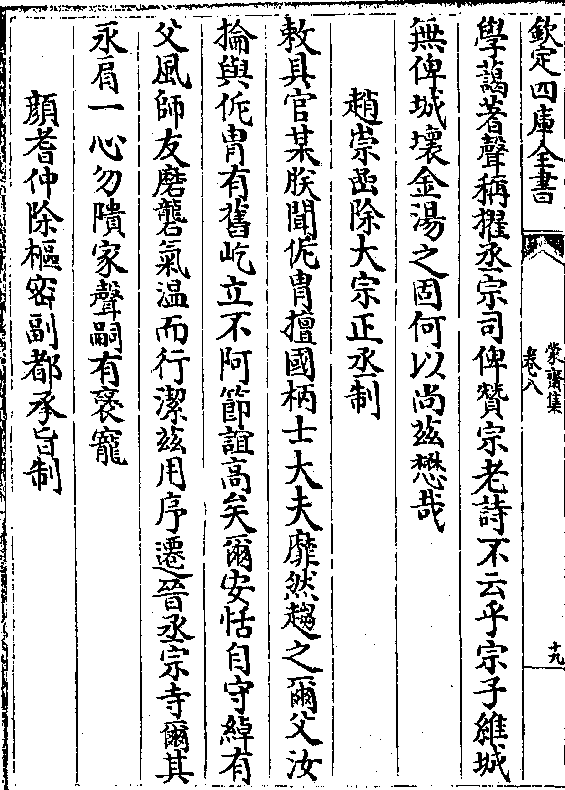 欽定四庫全書
蒙齋集
卷八
十九
學藹著聲稱擢丞宗司俾贊宗老詩不云乎宗子維城
無俾城壞金湯之固何以尚茲懋哉
趙崇嵒除大宗正丞制
敕具官某朕聞侂胄擅國柄士大夫靡然趨之爾父汝
掄與侂胄有舊屹立不阿節誼高矣爾安恬自守綽有
父風師友磨礱氣温而行潔茲用序遷晉丞宗寺爾其
永肩一心勿隤家聲嗣有褒寵
顔耆仲除樞密副都承旨制